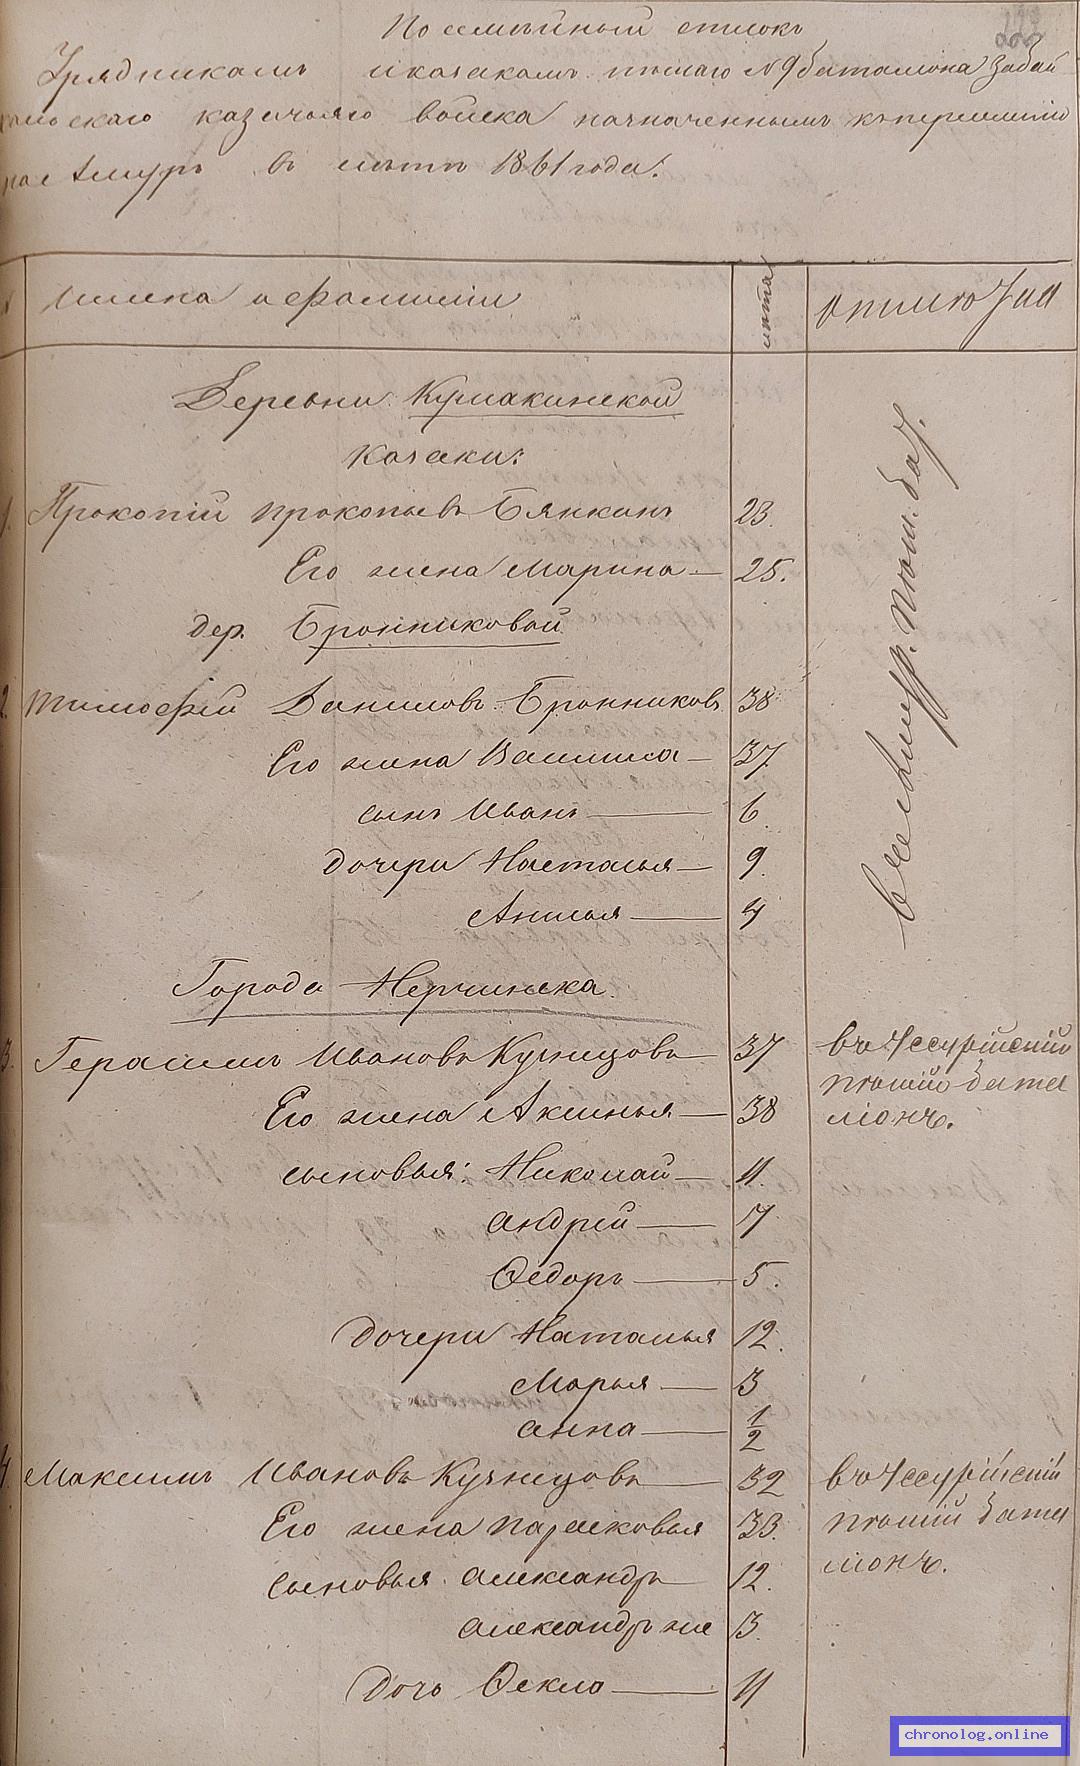 Посемейный списокъ
Урядникамъ и козакамъ пѣшаго №9 баталіона Забай
кальскаго казачьяго войска назначеннымъ къ переселенію
на Амуръ въ лѣто 1861 года.
Имена и фамиліи
лѣта
Деревни Кумакинской
Козаки:
1. Прокопій Прокопьевъ Бянкинъ 23.
Его жена Марина 25.
дер. Бронниковой
2. Тимофей Даниловъ Бронниковъ 38
Его жена Василиса 37
сынъ Иванъ 6.
дочери Настасья 9.
Анисья 4
въ Амур. пѣш. бат.
Города Нерчинска.
3. Герасимъ Ивановъ Кузнецовъ 37
въ Уссурійскій
пѣшій бата
ліонъ.
Его жена Аксинья 38
сыновья: Николай 11.
Андрей 7
Ѳедоръ 5.
Дочери Наталья 12.
Марья 3
Анна 1/2
4. Максимъ Ивановъ Кузнецовъ 32
въ Уссурійскій
пѣшій бата
ліонъ.
Его жена Парасковья 33.
Сыновья Александръ 12.
Александръ же 3.
Дочь Ѳекла 11
chronolog.online